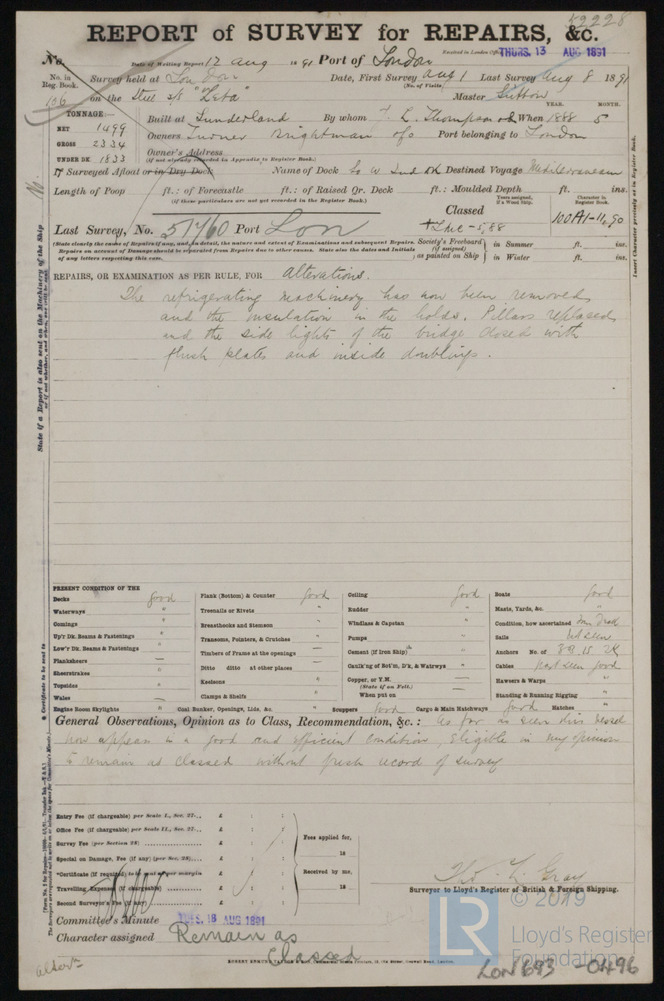 52228
REPORT of SURVEY for REPAIRS, &c.
No. Date of Writing Report 12 Aug 1891 Port of London Received in London Office THURS. 13 AUG 1891
No. in Reg. Book. Survey held at London Date, First Survey Aug 1 Last Survey Aug 8 1891
(No. of Visits)
106 on the Steel s/s "Zeta" Master Sutton
TONNAGE:— YEAR. MONTH.
NET 1499 Built at Sunderland By whom J. L. Thompson When 1888 5
GROSS 2334 Owners Turner Brightman & Co Port belonging to London
UNDER DK 1833 Owner's Address
(if not already recorded in Appendix to Register Book.)
If Surveyed Afloat or in Dry Dock Name of Dock So W Ind Dk Destined Voyage Mediterranean
Length of Poop ft.: of Forecastle ft.: of Raised Qr. Deck ft.: Moulded Depth ft. ins.
(if these particulars are not yet recorded in the Register Book.)
Classed
Years assigned, if a Wood Ship.
Character in Register Book.
100A1-11,90
Last Survey, No. 51760 Port Lon
+LMC-5,88
(State clearly the name of Repairs if any, and, in detail, the nature and extent of Examinations and subsequent Repairs.
Repairs on account of Damage should be separated from Repairs due to other causes. State also the dates and Initials
of any letters respecting this case.
Society's Freeboard (if assigned) as painted on Ship
in Summer ft. ins.
in Winter ft. ins.
REPAIRS, OR EXAMINATION AS PER RULE, FOR Alterations.
The refrigerating machinery has now been removed
and the insulation in the holds. Pillars replaced
and the side lights of the bridge closed with
flush plates and inside doublings.
State if a Report is also sent on the Machinery of the Ship
or if not, whether, and when, one will be sent
Insert Character precisely as in Register Book.
& Certificate to be sent to
PRESENT CONDITION OF THE
Decks good
Waterways "
Comings "
Up'r Dk. Beams & Fastenings "
Low'r Dk. Beams & Fastenings "
Planksheers —
Sheerstrakes "
Topsides "
Wales —
Engine Room Skylights "
Plank (Bottom) & Counter good
Treenails or Rivets "
Breasthooks and Stemson "
Transoms, Pointers, & Crutches "
Timbers of Frame at the openings —
Ditto ditto at other places —
Keelsons "
Clamps & Shelfs —
Coal Bunker, Openings, Lids, &c. "
Ceiling good
Rudder "
Windlass & Capstan "
Pumps "
Cement (if Iron Ship) "
Caulk'ng of Bot'm, D'k, & Watrwys "
Copper, or Y.M.
(State if on Felt.)
When put on
Scuppers good Cargo & Main Hatchways good Hatches "
Boats good
Masts, Yards, &c. "
Condition, how ascertained from Deck
Sails not seen
Anchors No. of
Cables not seen good
Hawsers & Warps "
Standing & Running Rigging "
General Observations, Opinion as to Class, Recommendation, &c.: As far as seen this vessel
now appears in a good and efficient condition, Eligible in my opinion
to remain as classed without fresh record of survey
Entry Fee (if chargeable) per Scale I., Sec. 27... £ : :
Office Fee (if chargeable) per Scale II., Sec. 27... £ : :
Survey Fee (per Section 28) £ : :
Special on Damage, Fee (if any) (per Sec. 28)... £ : :
*Certificate (if required) to be sent as per margin £ : :
Travelling Expenses (if chargeable) £ : :
Second Surveyor's Fee (if any) £ : :
Fees applied for,
18
Received by me,
18
Surveyor to Lloyd's Register of British & Foreign Shipping.
Committee's Minute TUES. 18 AUG 1891
Character assigned Remain as
Classed
© 2019
LR
Lloyd's Register
Foundation
LON 693 -0496